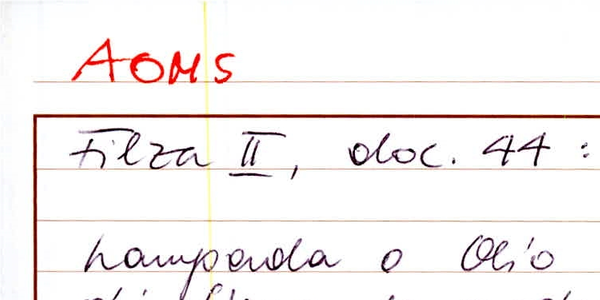 AOMS
Filza II, doc. 44:
Lampada o Olio